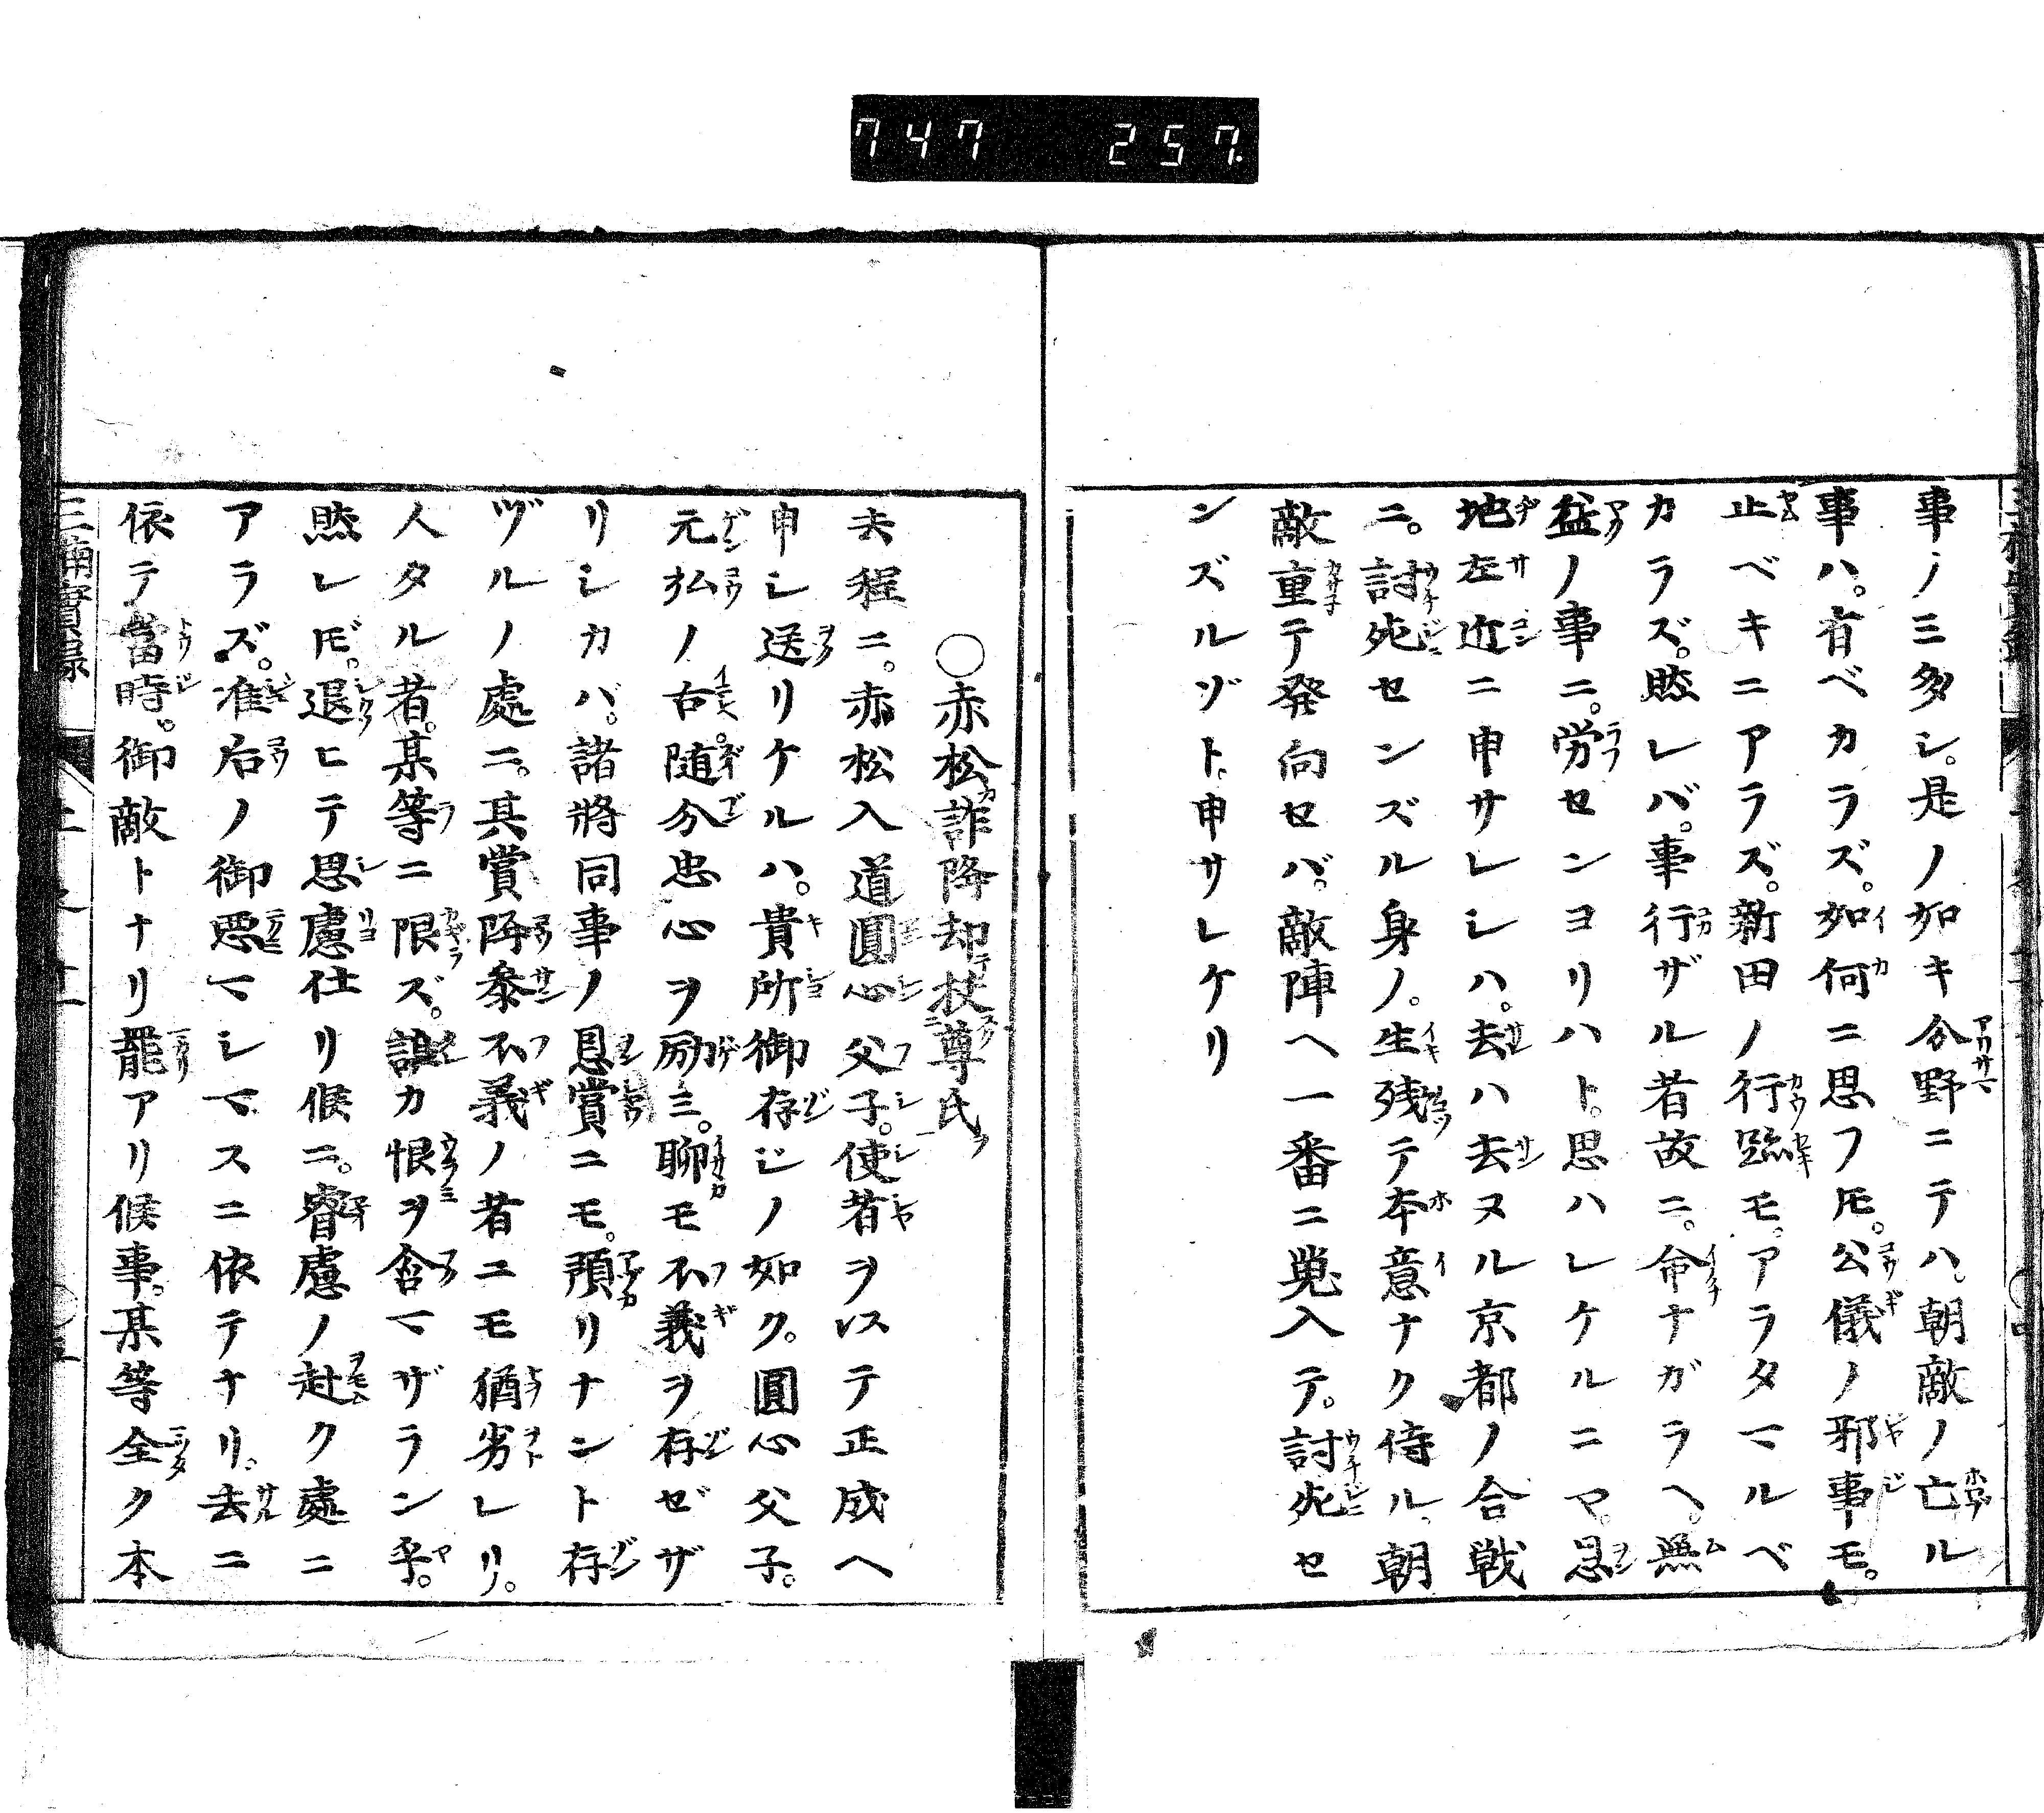 747 257.
事ノミ多シ。是ノ如キ分野ニテハ。朝敵ノ亡ル
事ハ。有ベカラズ。如何ニ思フ𪜈。公儀ノ邪事モ。
止ベキニアラズ。新田ノ行跡モ。アラタマルベ
カラズ。然レバ。事行ザル者故ニ。命ナガラヘ。無
益ノ事ニ。労センヨリハト。思ハレケルニマ。恩
地左近ニ申サレシハ。去ハ去ヌル京都ノ合戦
ニ。討死センズル身ノ。生残テ本意ナク侍ル。朝
敵重テ発向セバ。敵陣ヘ一番ニ蒐入テ。討死セ
ンズルゾト。申サレケリ
○赤松詐降却扶尊氏
去程ニ。赤松入道圓心父子。使者ヲ以テ正成ヘ
申シ送リケルハ。貴所御存ジノ如ク。圓心父子。
元弘ノ古。随分忠心ヲ励ミ。聊モ不義ヲ存ゼザ
リシカバ。諸將同事ノ恩賞ニモ。預リナント存
ヅルノ處ニ。其賞降参不義ノ者ニモ猶劣レリ。
人タル者。某等ニ限ズ。誰カ恨ヲ含マザラン乎。
然レ𪜈。退ヒテ思慮仕リ候ニ。睿慮ノ赴ク處ニ
アラズ。准后ノ御悪マシマスニ依テナリ。去ニ
依テ當時。御敵トナリ罷アリ候事。某等全ク本